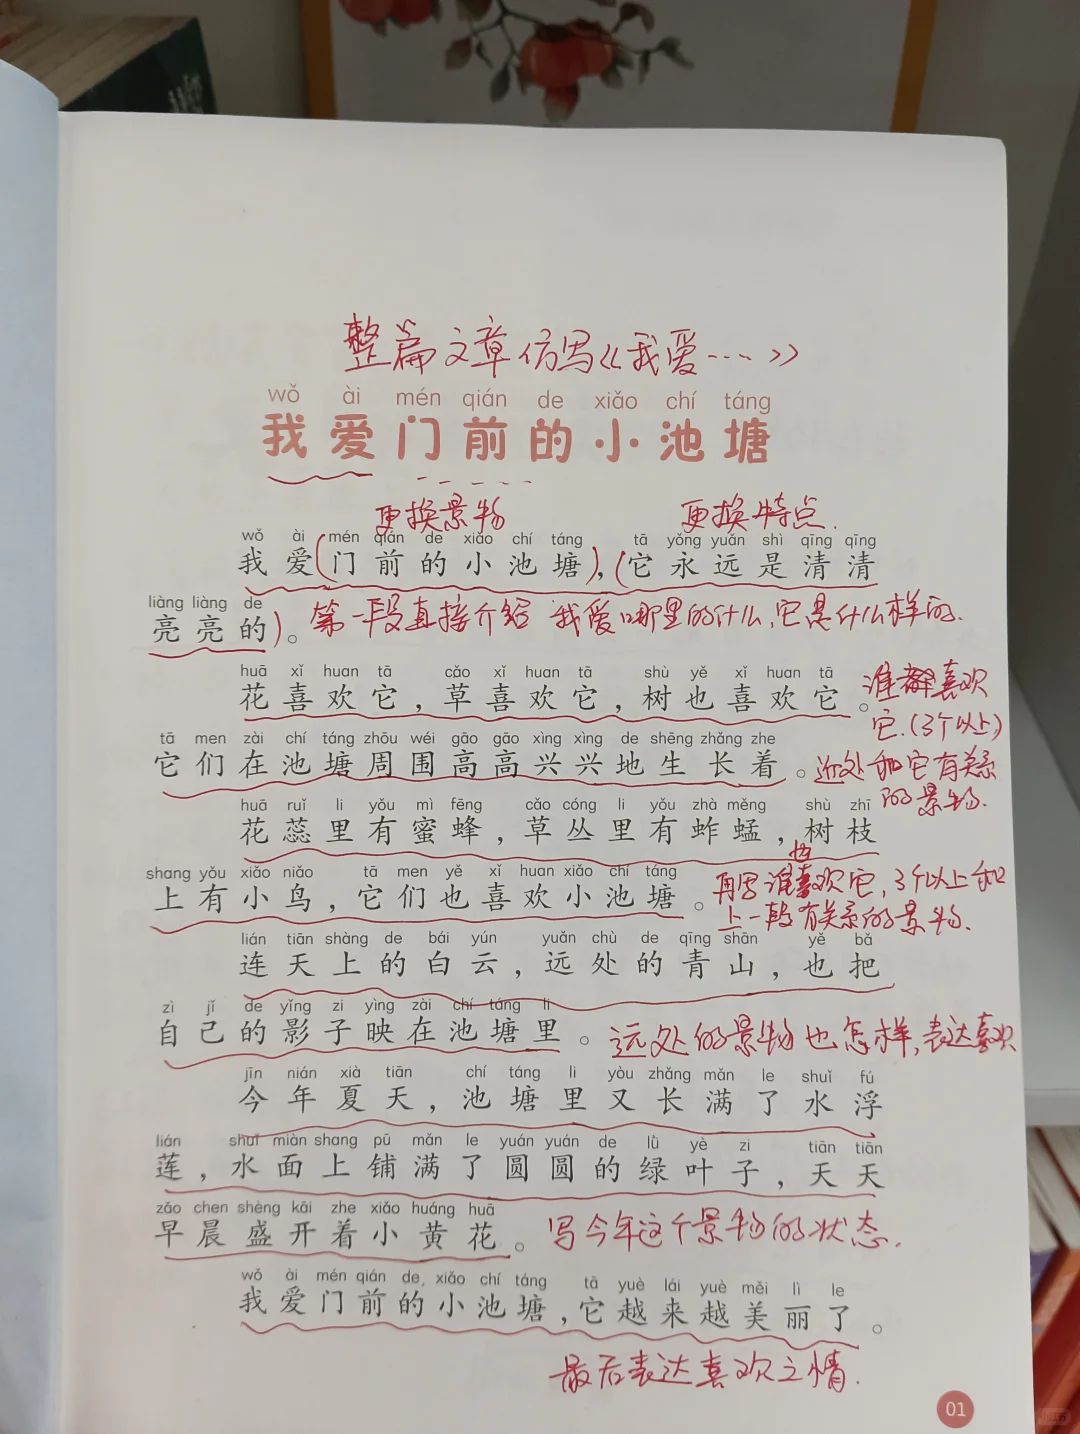 整篇文章仿写《我爱……》
wǒ ài mén qián de xiǎo chí táng
我爱门前的小池塘
更换景物 更换特点.
wǒ ài mén qián de xiǎo chí táng tā yǒng yuǎn shì qīng qīng
我爱(门前的小池塘),(它永远是清清
liàng liàng de
亮亮的)。第一段直接介绍 我爱哪里的什么,它是什么样的.
huā xǐ huan tā cǎo xǐ huan tā shù yě xǐ huan tā
花喜欢它,草喜欢它,树也喜欢它。谁都喜欢
它.(3个以上)
tā men zài chí táng zhōu wéi gāo gāo xìng xìng de shēng zhǎng zhe
它们在池塘周围高高兴兴地生长着。近处和它有关系
的景物.
huā ruǐ li yǒu mì fēng cǎo cóng li yǒu zhà měng shù zhī
花蕊里有蜜蜂,草丛里有蚱蜢,树枝
shang yǒu xiǎo niǎo tā men yě xǐ huan xiǎo chí táng
上有小鸟,它们也喜欢小池塘。再写谁也喜欢它,3个以上和
上一段有关系的景物.
lián tiān shàng de bái yún yuǎn chù de qīng shān yě bǎ
连天上的白云,远处的青山,也把
zì jǐ de yǐng zi yìng zài chí táng li
自己的影子映在池塘里。远处的景物也怎样,表达喜欢
jīn nián xià tiān chí táng li yòu zhǎng mǎn le shuǐ fú
今年夏天,池塘里又长满了水浮
lián shuǐ miàn shang pū mǎn le yuán yuán de lǜ yè zi tiān tiān
莲,水面上铺满了圆圆的绿叶子,天天
zǎo chen shèng kāi zhe xiǎo huáng huā
早晨盛开着小黄花。写今年这个景物的状态.
wǒ ài mén qián de xiǎo chí táng tā yuè lái yuè měi lì le
我爱门前的小池塘,它越来越美丽了。
最后表达喜欢之情.
01